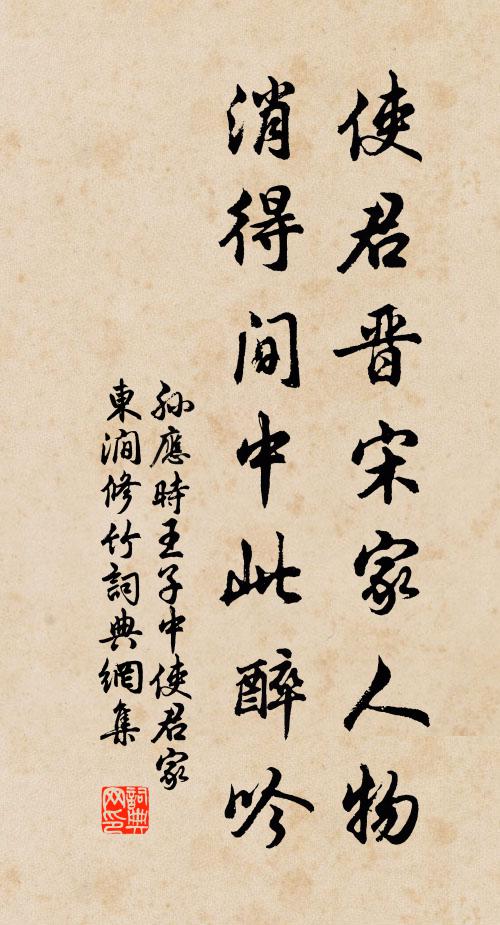 使君晋宋家人物
消得间中此醉吟
孙應時王子中使君家
東澗修竹詞典網集
詞典網印